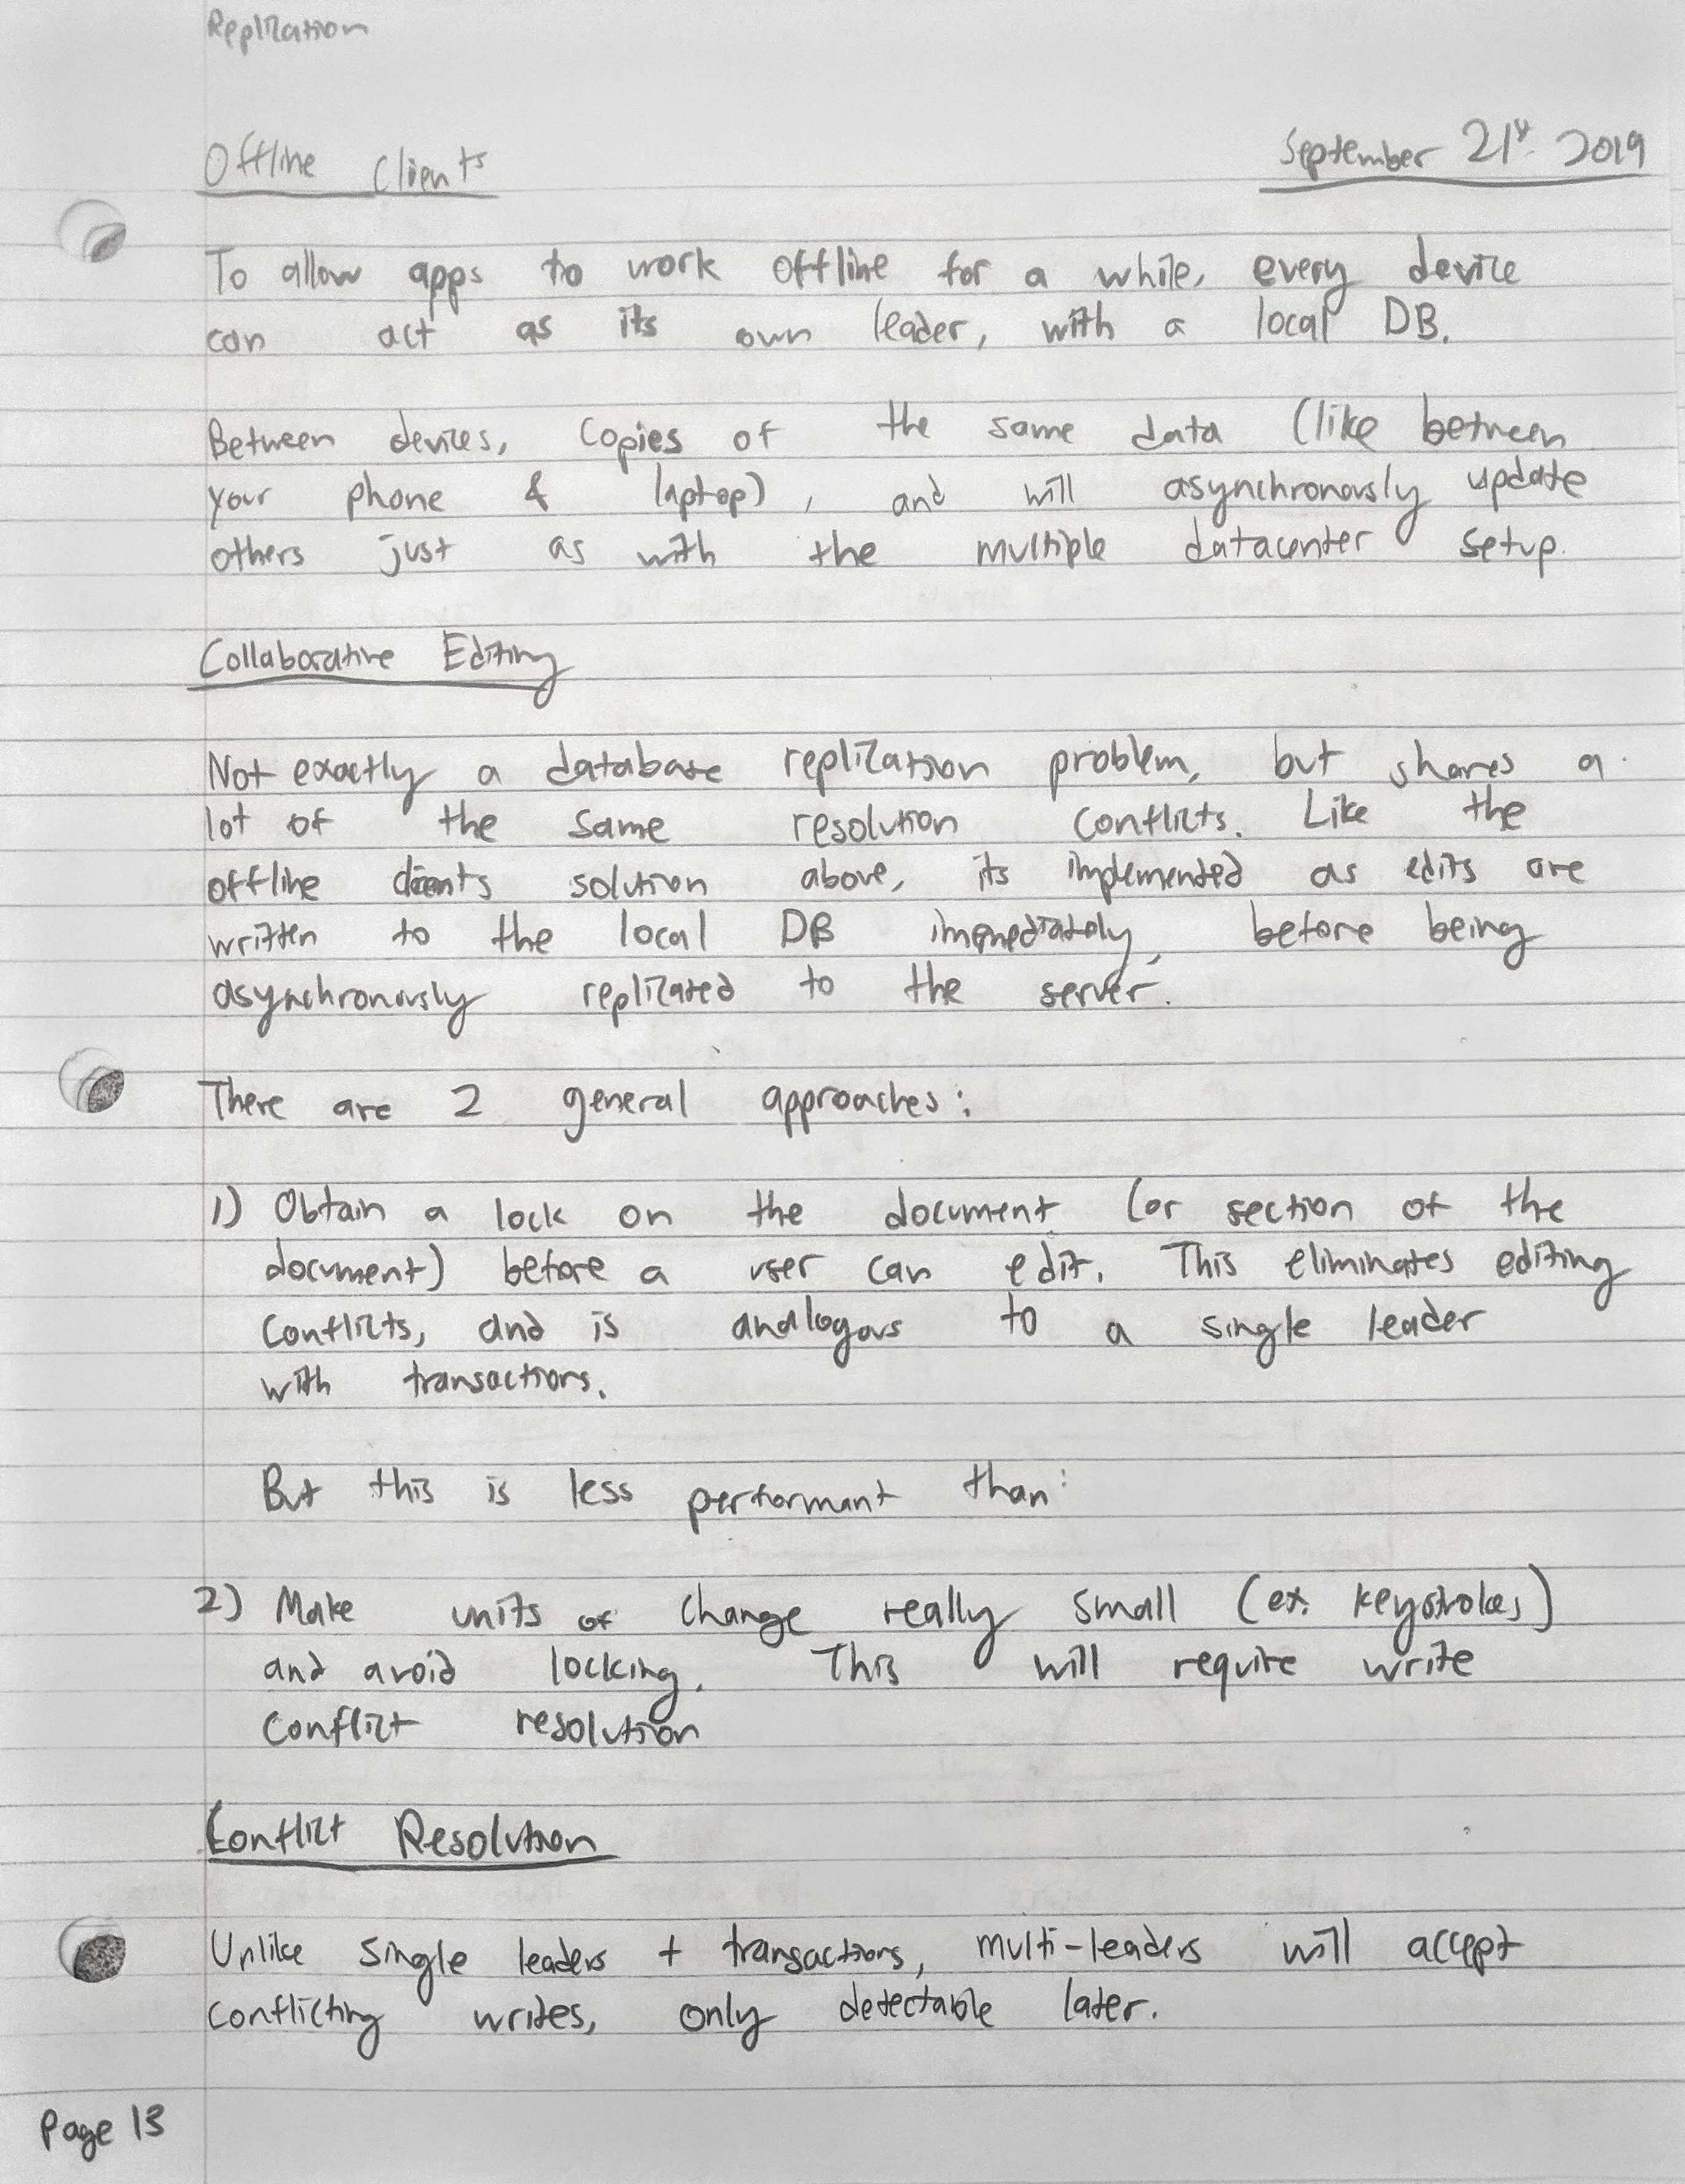 Replication
Offline Clients
September 21st 2019
To allow apps to work offline for a while, every device
can act as its own leader, with a local DB.
Between devices, copies of the same data (like between
your phone & laptop), and will asynchronously update
others just as with the multiple datacenter setup.
Collaborative Editing
Not exactly a database replication problem, but shares a
lot of the same resolution conflicts. Like the
offline clients solution above, its implemented as edits are
written to the local DB immediately, before being
asynchronously replicated to the server.
There are 2 general approaches:
1) Obtain a lock on the document (or section of the
document) before a user can edit. This eliminates editing
conflicts, and is analogous to a single leader
with transactions.
But this is less performant than:
2) Make units of change really small (ex. keystrokes)
and avoid locking. This will require write
conflict resolution
Conflict Resolution
Unlike single leaders + transactions, multi-leaders will accept
conflicting writes, only detectable later.
Page 13